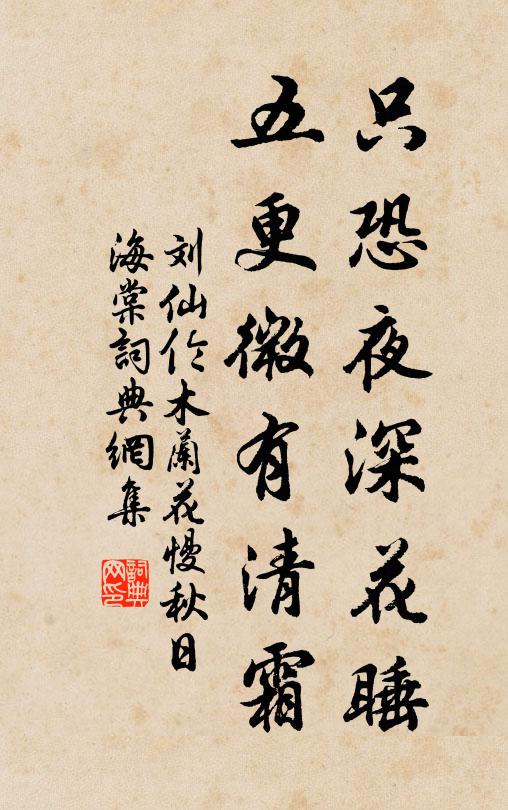 只恐夜深花睡
五更微有清霜
刘仙伦木蘭花慢秋日
海棠詞典網集
詞典
网印